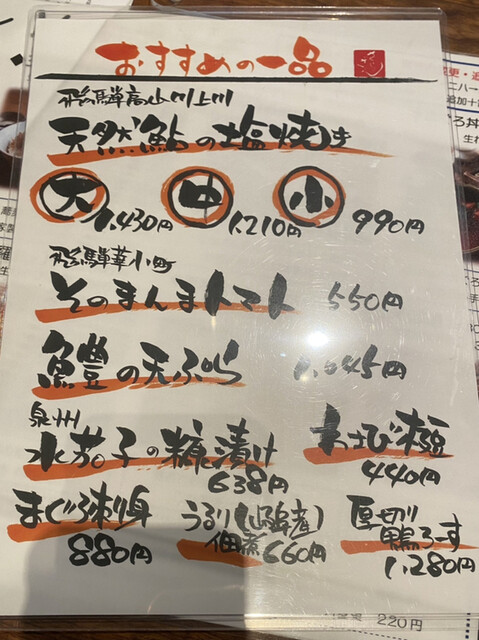 おすすめの一品
飛騨高山川上川
天然鮎の塩焼き
大 1,430円 中 1,210円 小 990円
飛騨華小町
そのまんまトマト 550円
鱧の天ぷら 1,045円
泉州
水茄子の糠漬け 638円
わさび椒 440円
まぐろ刺身 880円
佃煮 660円
厚切り
鴨ろーす
1,280円
220円